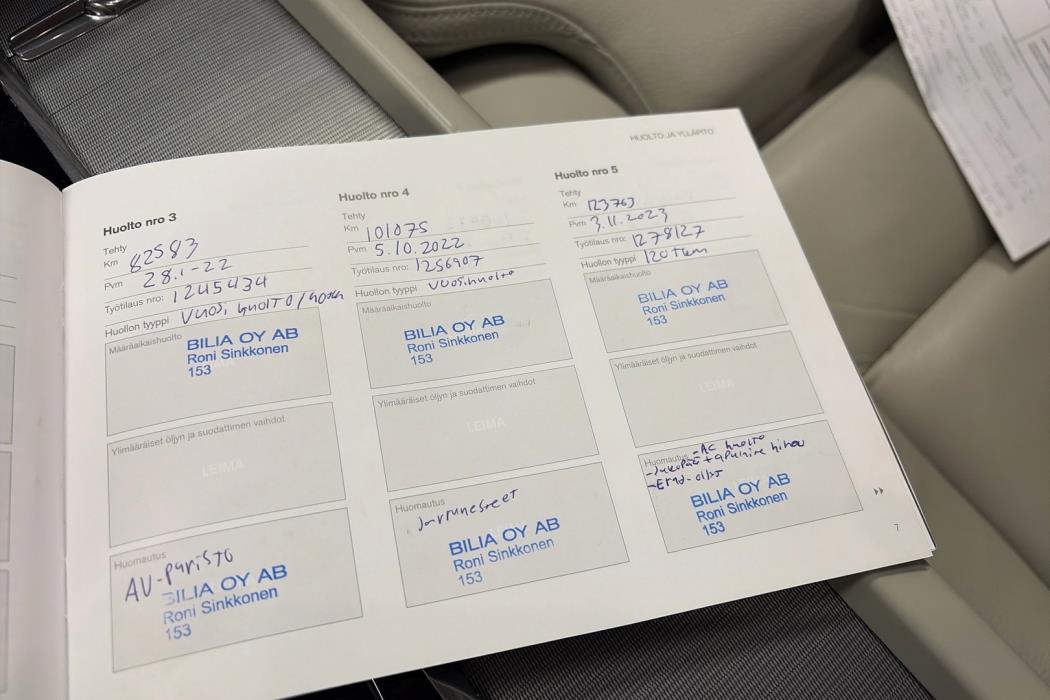 HUOLTO JA YLLÄPITO
Huolto nro 3
Tehty
Km 82583
Pvm 28.1-22
Työtilaus nro: 1245434
Huollon tyyppi Vuosi huolto /
Määräaikaishuolto
BILIA OY AB
Roni Sinkkonen
153
Ylimääräiset öljyn ja suodattimen vaihdot
LEIMA
Huomautus
AV-paristo
BILIA OY AB
Roni Sinkkonen
153
Huolto nro 4
Tehty
Km 101075
Pvm 5.10.2022
Työtilaus nro: 1256907
Huollon tyyppi Vuosihuolto
Määräaikaishuolto
BILIA OY AB
Roni Sinkkonen
153
Ylimääräiset öljyn ja suodattimen vaihdot
LEIMA
Huomautus
Jarrunesteet
BILIA OY AB
Roni Sinkkonen
153
Huolto nro 5
Tehty
Km 123763
Pvm 3.11.2023
Työtilaus nro: 1278127
Huollon tyyppi 120 Tkm
Määräaikaishuolto
BILIA OY AB
Roni Sinkkonen
153
Ylimääräiset öljyn ja suodattimen vaihdot
LEIMA
Huomautus -AC huolto
-Jakopää + apulaite hihna
BILIA OY AB
Roni Sinkkonen
153
7